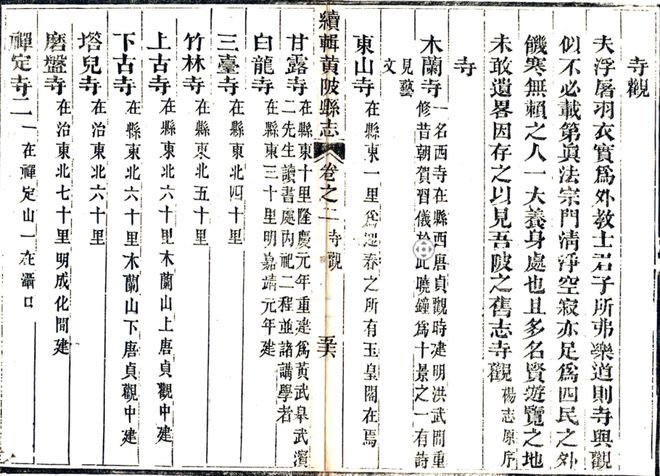 寺觀
夫浮屠羽衣實爲外教士君子所弗樂道則寺與觀
似不必載第眞法宗門清淨空寂亦足爲四民之外
饑寒無賴之人一大養身處也且多名賢遊覽之地
未敢遺畧因存之以見吾陂之舊志寺觀 楊志原序
寺
木蘭寺 一名西寺在縣西唐貞觀時建明洪武間重
修昔朝賀習儀於此曉鐘爲十景之一有詩
見藝
文
東山寺 在縣東一里爲迎春之所有玉皇閣在焉
續輯黃陂縣志 卷之二 寺觀
甘露寺 在縣東十里隆慶元年重建爲黃武皋武濱
二先生讀書處內祀二程並諸講學者
白龍寺 在縣東三十里明嘉靖元年建
三臺寺 在縣東北四十里
竹林寺 在縣東北五十里
上古寺 在縣東北六十里木蘭山上唐貞觀中建
下古寺 在縣東北六十里木蘭山下唐貞觀中建
塔兒寺 在治東北六十里
磨盤寺 在治東北七十里明成化間建
禪定寺二 一在禪定山一在灄口